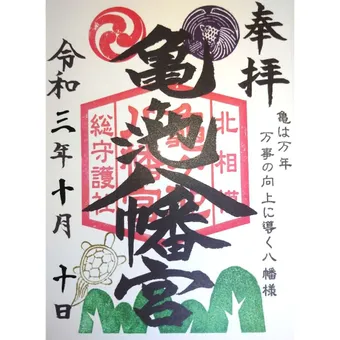 奉拝
亀は万年
万事の向上に導く八幡様
亀ヶ池八幡宮
北相模
総守護社
令和三年十月十日